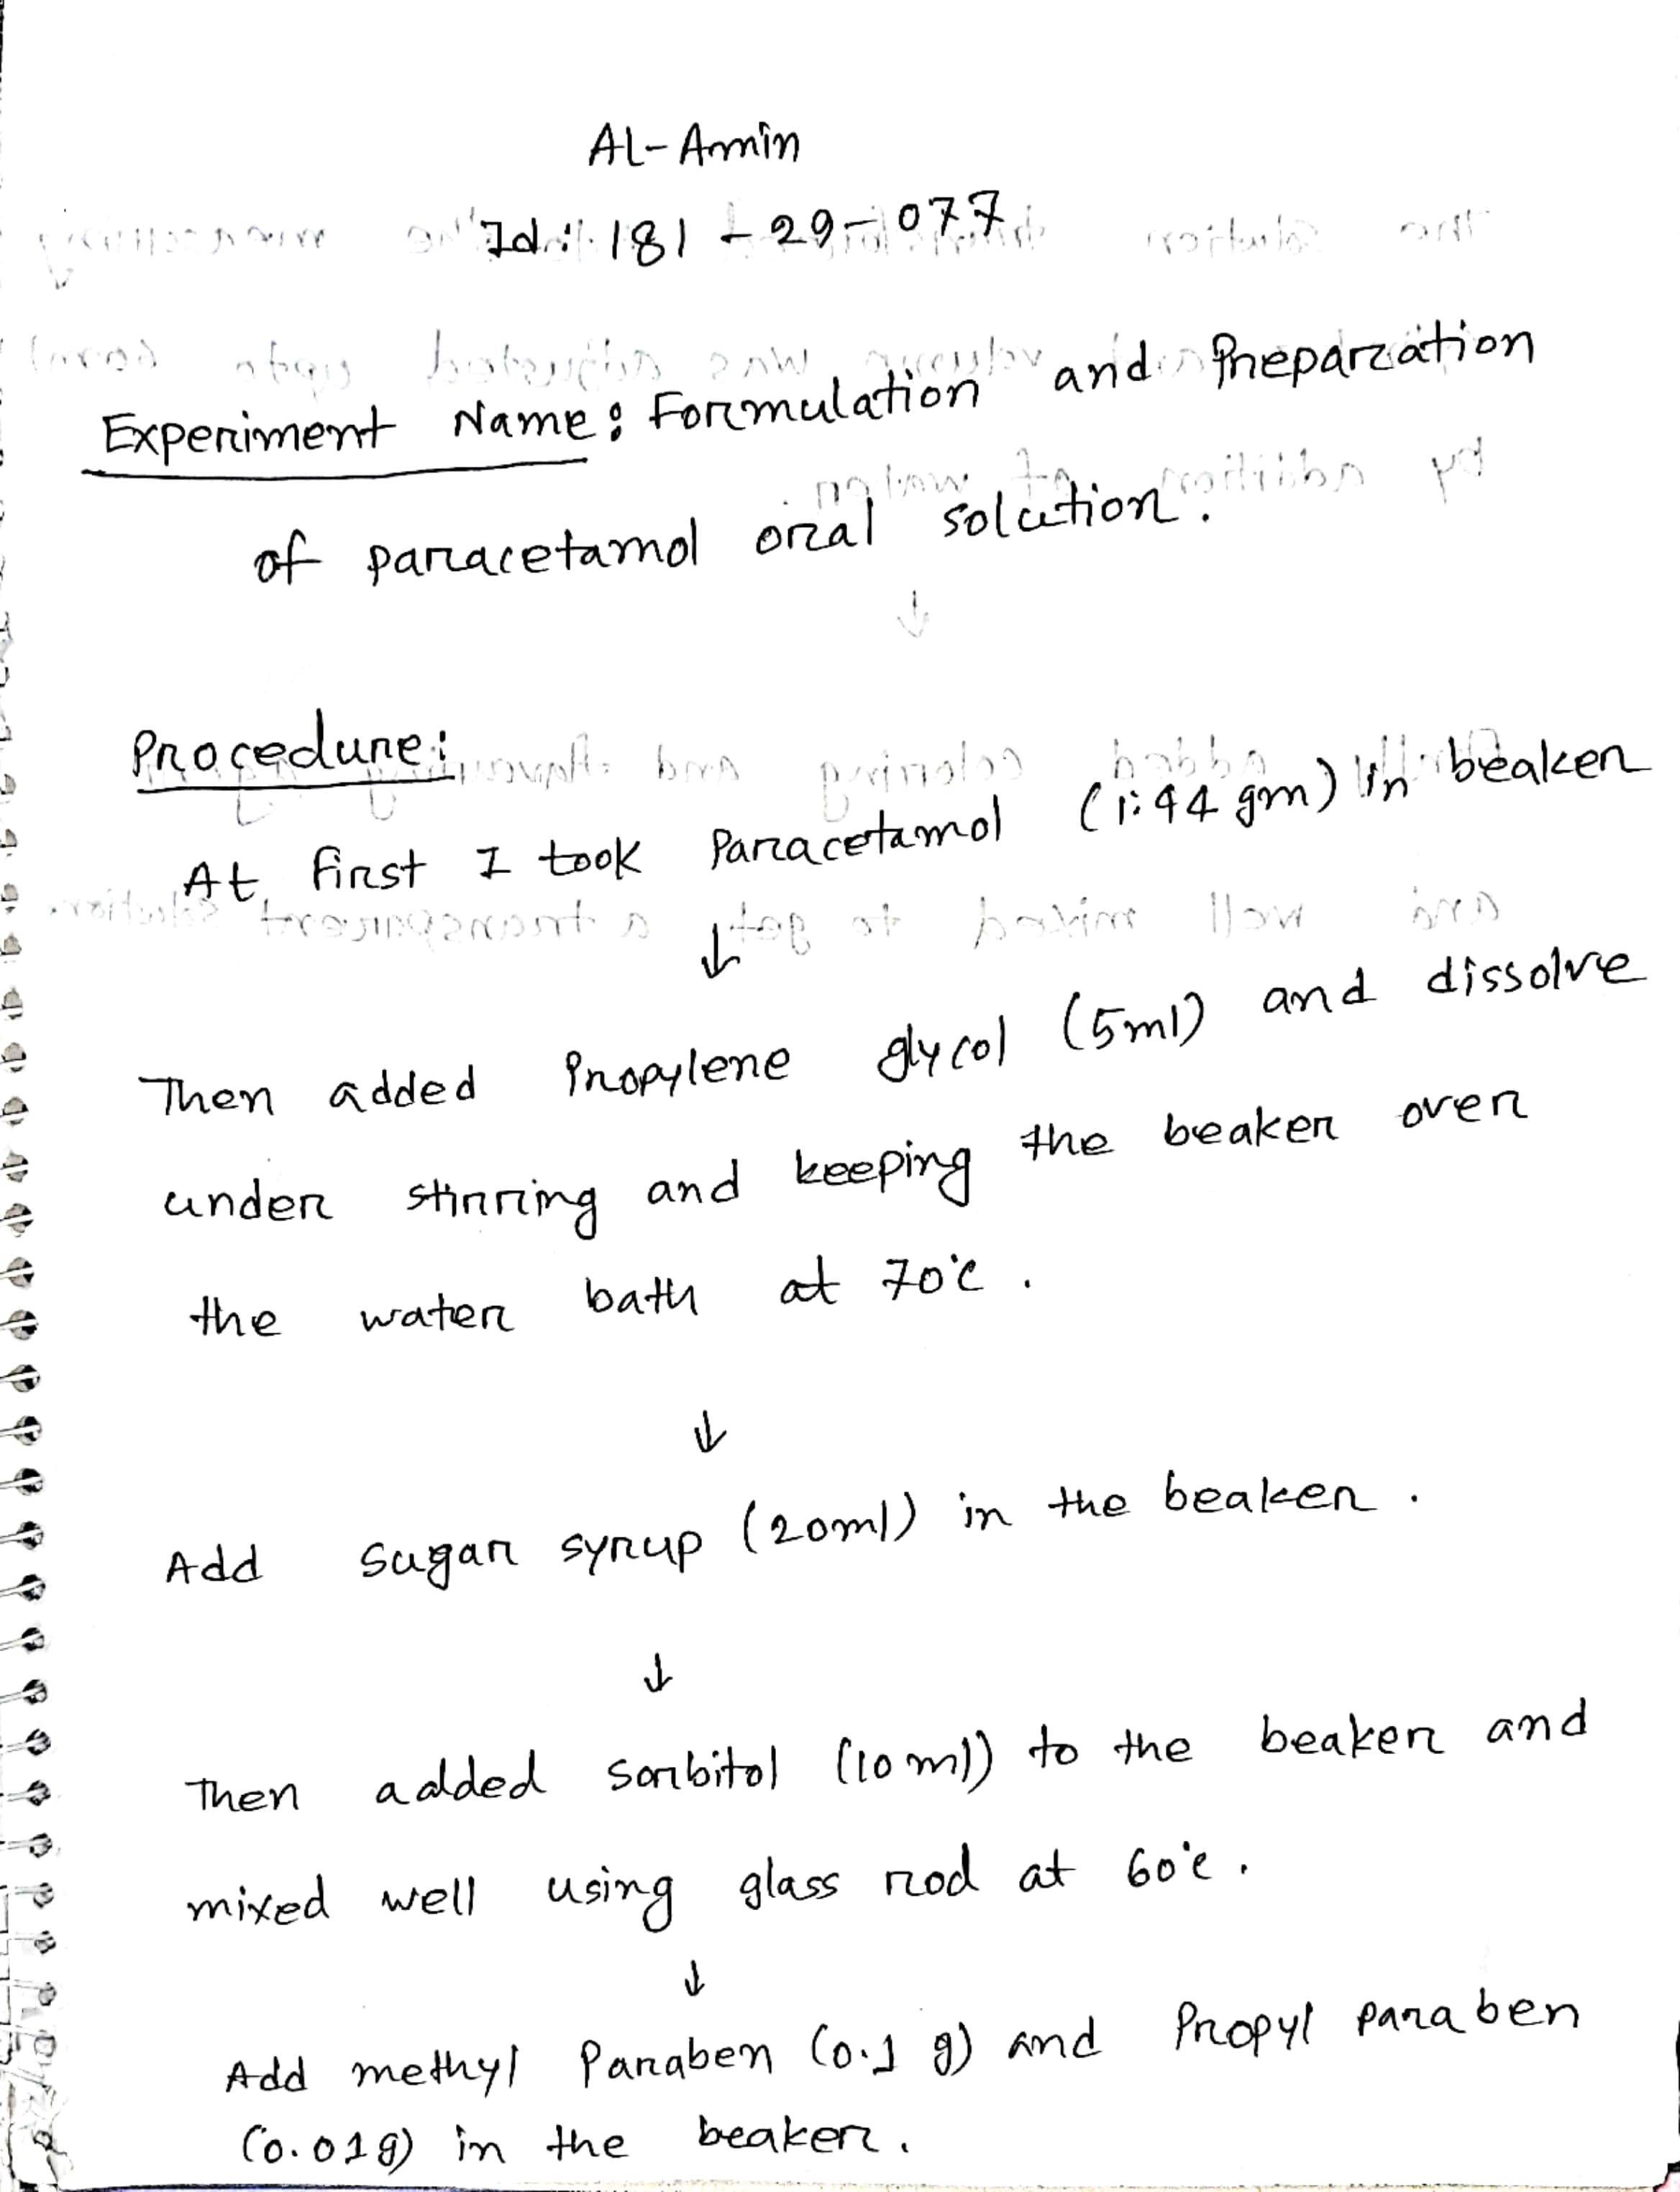 Al-Amin
Id: 181-29-077
Experiment Name: Formulation and Preparation
of paracetamol oral solution.
↓
Procedure:
At first I took Paracetamol (1.44 gm) in beaker
↓
Then added Propylene glycol (5ml) and dissolve
under stirring and keeping the beaker over
the water bath at 70°c.
↓
Add sugar syrup (20ml) in the beaker.
↓
Then added sorbitol (10 ml) to the beaker and
mixed well using glass rod at 60°c.
↓
Add methyl Paraben (0.1 g) and Propyl paraben
(0.01g) in the beaker.